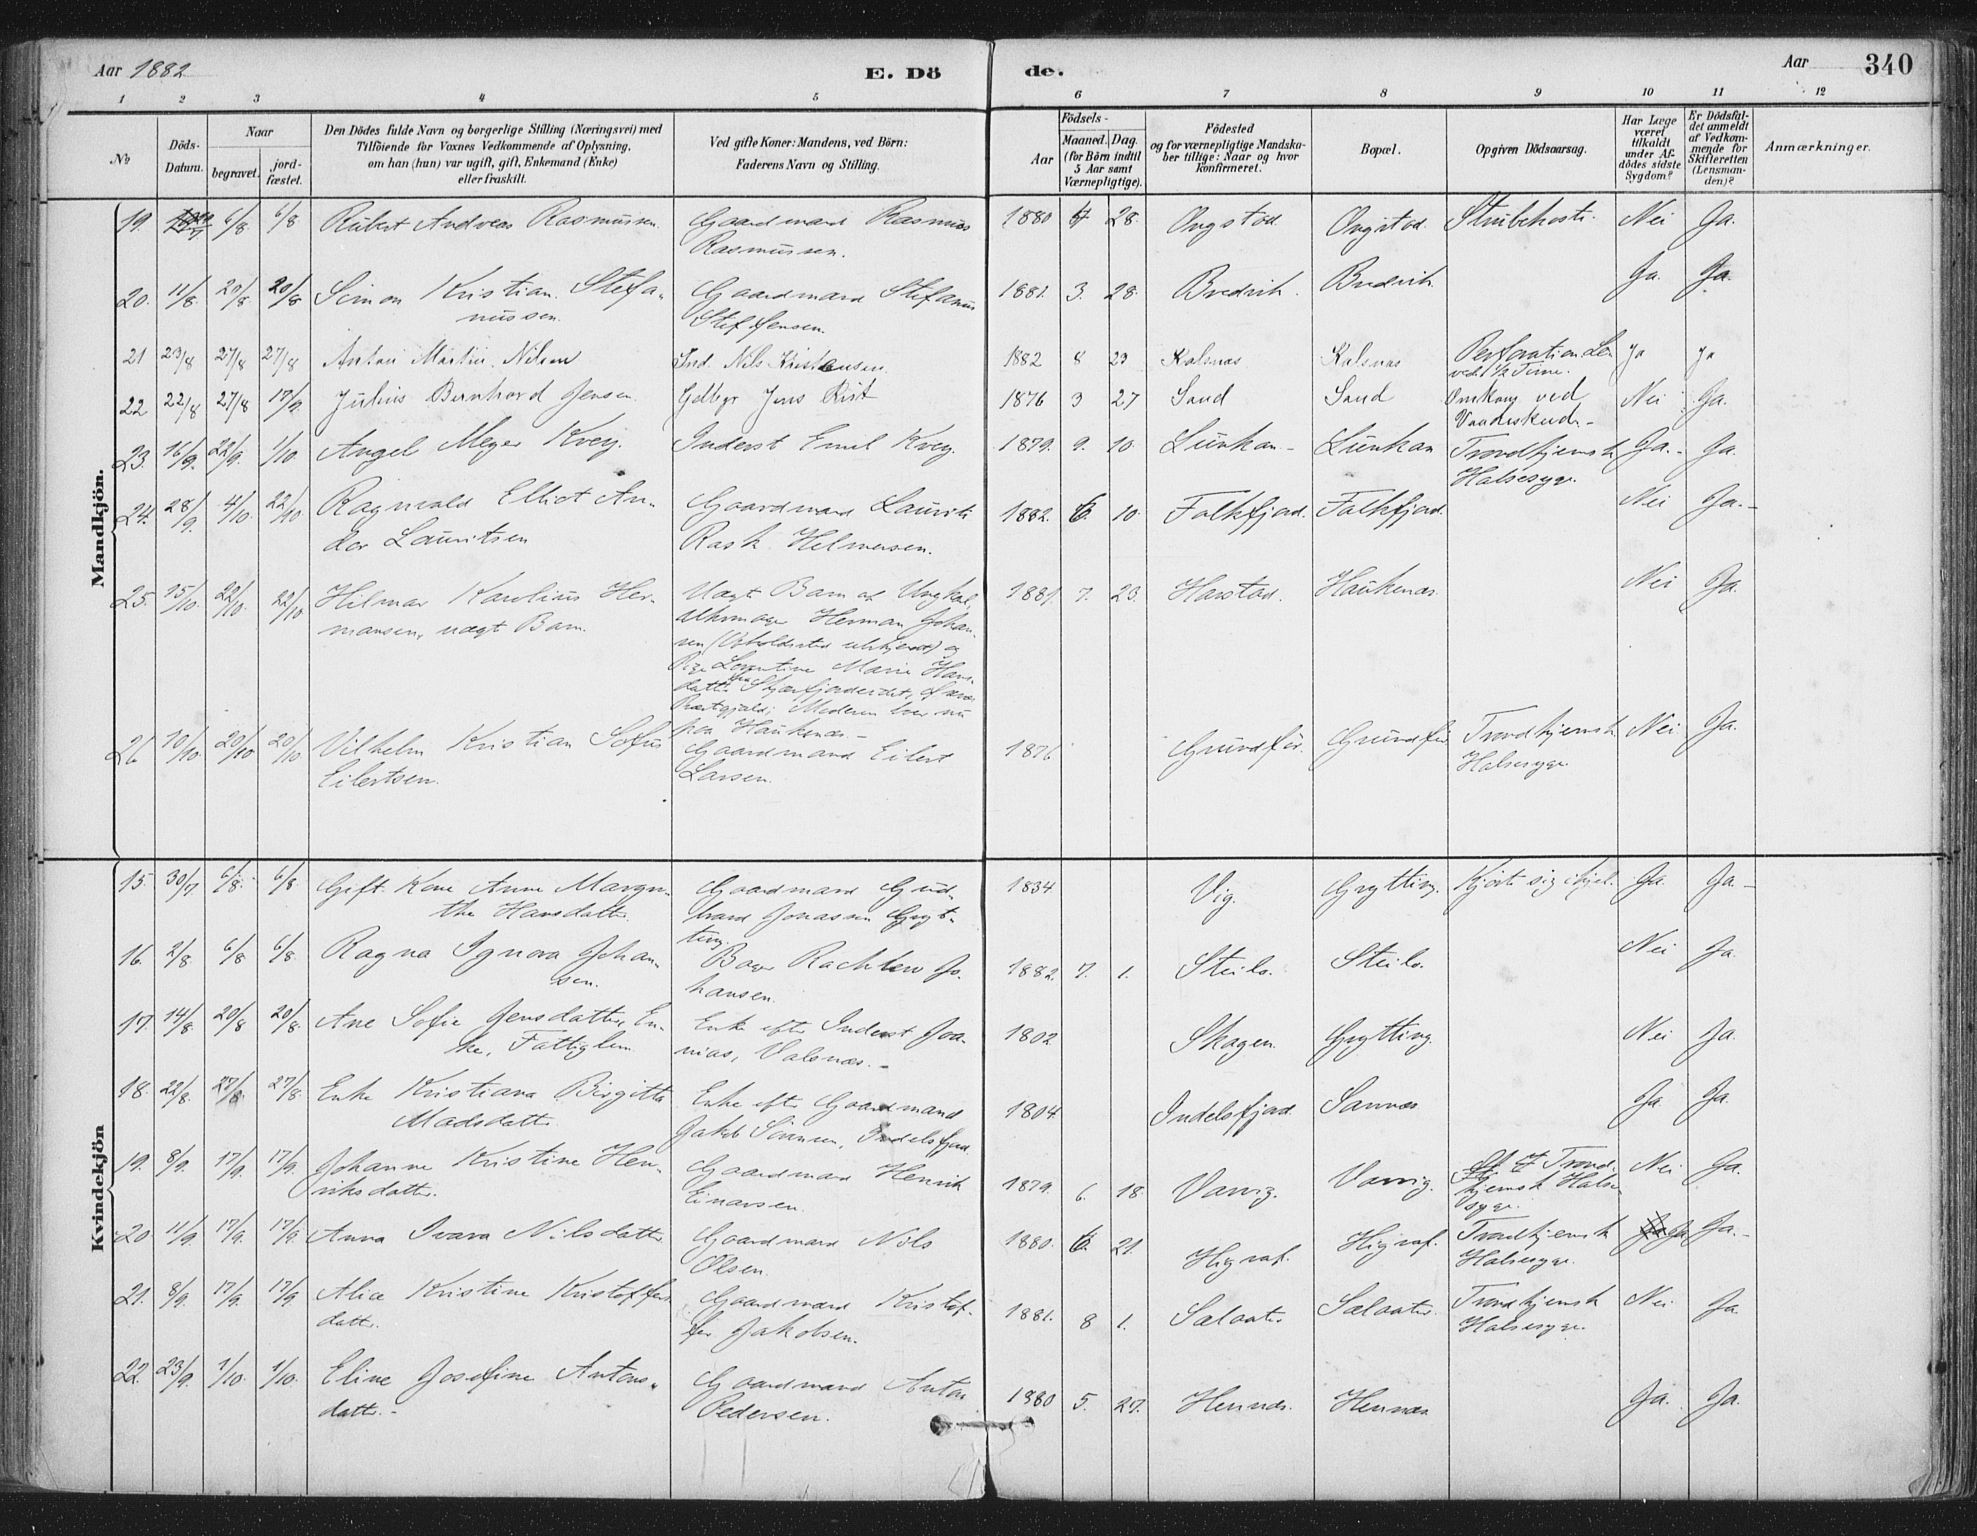 Aar 1882
E. Dö
de.
Aar
340
1 2 3 4 5 6 7 8 9 10 11 12
No
Döds-Datum.
Naar
begravet.
jord-fæstet.
Den Dödes fulde Navn og borgerlige Stilling (Næringsvei) med
Tilföiende for Voxnes Vedkommende af Oplysning,
om han (hun) var ugift, gift, Enkemand (Enke)
eller fraskilt.
Ved gifte Koner: Mandens, ved Börn:
Faderens Navn og Stilling.
Födsels-
Aar
Maaned. Dag.
(for Börn indtil
5 Aar samt
Værnepligtige).
Födested
og for værnepligtige Mandska-
ber tillige: Naar og hvor
konfirmeret.
Bopæl.
Opgiven Dödsaarsag.
Har Læge
været
tilkaldt
under Af-
dödes sidste
Sygdom?
Er Dödsfal-
det anmeldt
af Vedkom-
mende for
Skifteretten
(Lensman-
den)?
Anmærkninger.
Mandkjön.
19. 6/8 6/8 Rubert Andreas Rasmussen. Gaardmand Rasmus
Rasmussen.
1880 28. Ongstad. Ongstad. Strubehoste. Nei Ja.
20. 11/8. 20/8 20/8 Simon Kristian Stefa-
nussen.
Gaardmand Stefanus
Steffensen.
1881. 3. 28. Bredvik. Bredvik Ja. Ja.
21 23/8 27/8 27/8 Anton Martin Nilsen Ind. Nils Kristensen.
1882 8 23 Kalsnæs Kalsnæs Ja Ja
ved 1 1/2 Time.
22 22/8 27/8 17/9. Julius Bernhard Jensen. Gdbgr Jens Rist
1876 3 27 Sand Sand Omkom ved
Vaadeskud.- Nei Ja.
23. 16/9. 22/9. 1/10. Angel Meyer Kvey. Inderst Emil Kvey.
1879. 9. 10 Lunkan- Lunkan Trondhjemsk
Halsesyge. Ja.- Ja.
24. 28/9. 4/10. 22/10 Ragnvald Elliot An-
dor Lauritsen
Gaardmand Laurits
Rask Helmersen.
1882. 6. 10. Falkfjord. Falkfjord. Nei Ja.-
25. 15/10. 22/10 22/10 Hilmar Karolius Her-
mansen, uægt Barn.
Uægt Barn af Ungkal,
Herman Johan-
sen (Opholdssted ubekjendt) og
Pige Lorentine Marie Hans-
datter fra
Præstegjæld; Moderen bor nu
paa Haukenæs.-
1881. 7. 23. Harstad. Haukenæs. Nei Ja.
26 10/10. 20/10 20/10 Vilhelm Kristian Sofus
Eilertsen.
Gaardmand Eilert
Larsen.
1876 Grundfør. Grundfør Trondhjemsk
Halsesyge. Nei Ja.
Kvindekjön
15. 30/7 6/8. 6/8. Gift Kone Anne Margre-
the Hansdatter.
Gaardmand Gud-
brand Jonassen Gryt-
ting.
1834 Vig. Grytting. Kjørte sig ihjel. Ja. Ja-
16. 2/8. 6/8 6/8. Ragna Ignora Johan-
sen.
Bager Rachlew Jo-
hansen.
1882. 7. 1. Steilo. Steilo. Nei Ja.
17. 14/8. 20/8 20/8. Ane Sofie Jensdatter, En-
ke, Fattiglem
Enke efter Inderst Joa-
nias, Valsnæs.-
1802. Skagen. Grytting. Nei Ja.
18. 22/8. 27/8. 27/8. Enke Kristiana Birgitta
Madsdatter.
Enke efter Gaardmand
Jakob Sörensen, Indelsfjord
1804 Indelsfjord. Sannæs Ja. Ja.
19. 8/9. 17/9. 17/9. Johanne Kristine Hen-
riksdatter.
Gaardmand Henrik
Einarsen.
1879. 6. 18 Varvig. Varvig. Trond-
hjemsk Halse-
syge. Nei Ja.
20. 11/9. 17/9. 17/9. Anna Ivara Nilsdatter Gaardmand Nils
Olsen.
1880. 6. 21. Higraf. Higraf. Trondhjemsk
Halsesyge. Ja Ja.-
21. 8/9. 17/9. 17/9. Alice Kristine Kristoffers-
datter.
Gaardmand Kristof-
fer Jakobsen.
1881. 8 1. Sælaater Sælaater. Trondhjemsk
Halsesyge. Nei Ja
22. 23/9. 1/10. 1/10. Eline Josefine Antons-
datter.-
Gaardmand Anton
Pedersen.
1880 5. 27. Hennæs. Hennæs Ja. Ja.